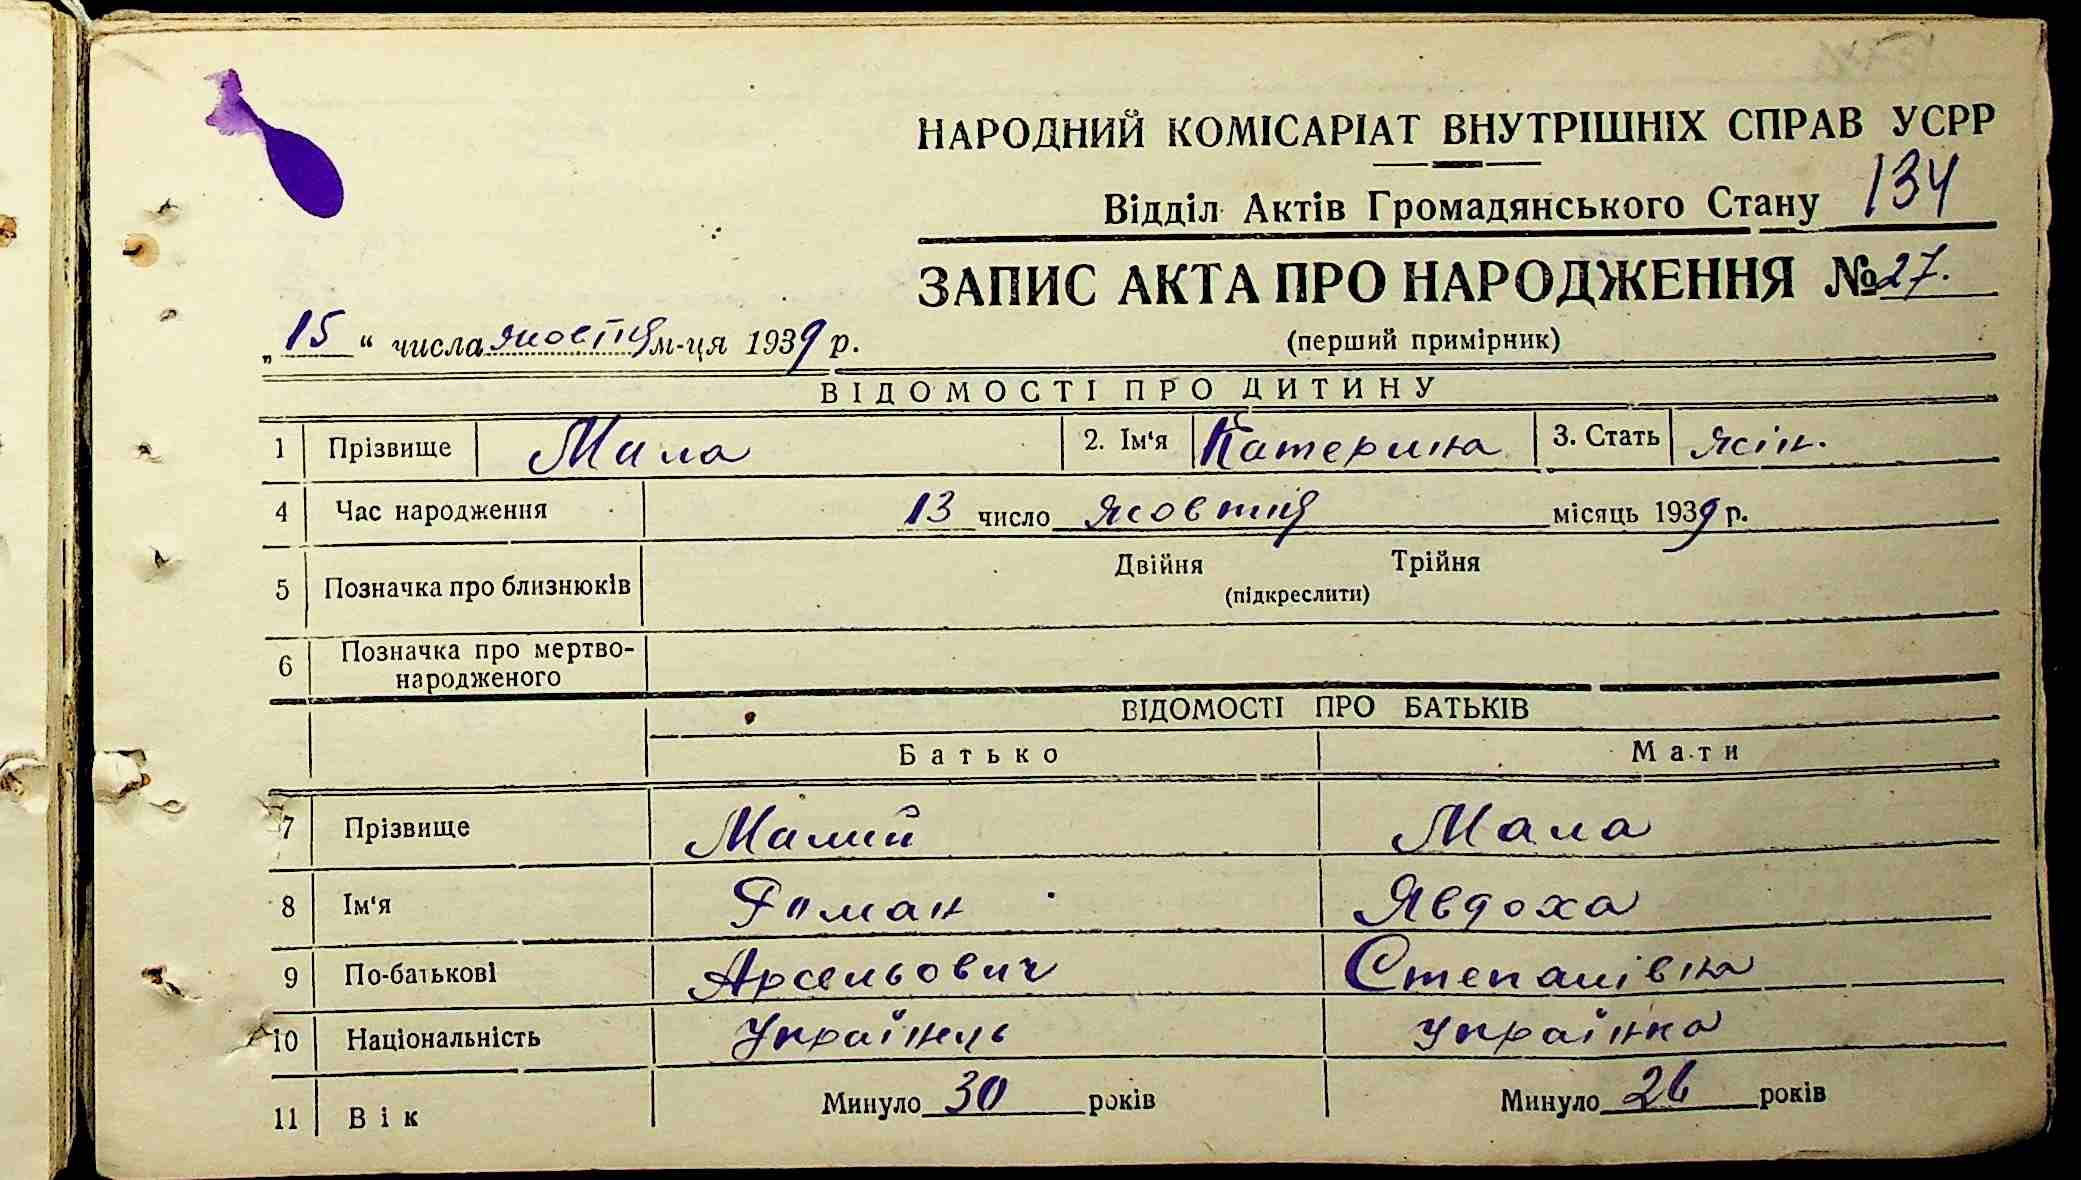 НАРОДНИЙ КОМІСАРІАТ ВНУТРІШНІХ СПРАВ УСРР
Відділ Актів Громадянського Стану 134
ЗАПИС АКТА ПРО НАРОДЖЕННЯ № 27.
„15“ числа жовтня м-ця 1939 р. (перший примірник)
ВІДОМОСТІ ПРО ДИТИНУ
1 Прізвище Мала 2. Ім'я Катерина 3. Стать жін.
4 Час народження 13 число жовтня місяць 1939 р.
5 Позначка про близнюків Двійня Трійня
(підкреслити)
6 Позначка про мертво-
народженого
ВІДОМОСТІ ПРО БАТЬКІВ
Батько Мати
7 Прізвище Малий Мала
8 Ім'я Роман Явдоха
9 По-батькові Арсеньович Степанівна
10 Національність Українець Українка
11 Вік Минуло 30 років Минуло 26 років